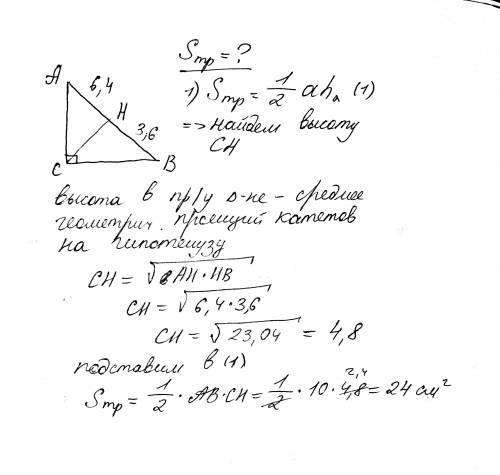 Sтр = ?
A
6,4
1) Sтр = 1/2 ahₐ (1)
H
=> найдем высоту
3,6
CH
C
B
высота в пр/у Δ-не - среднее
геометрич. проекций катетов
на гипотенузу
CH = √AH·HB
CH = √6,4·3,6
CH = √23,04 = 4,8
подставим в (1)
Sтр = 1/2 · AB·CH = 1/2 · 10 · 4,8 2,4 = 24 см²